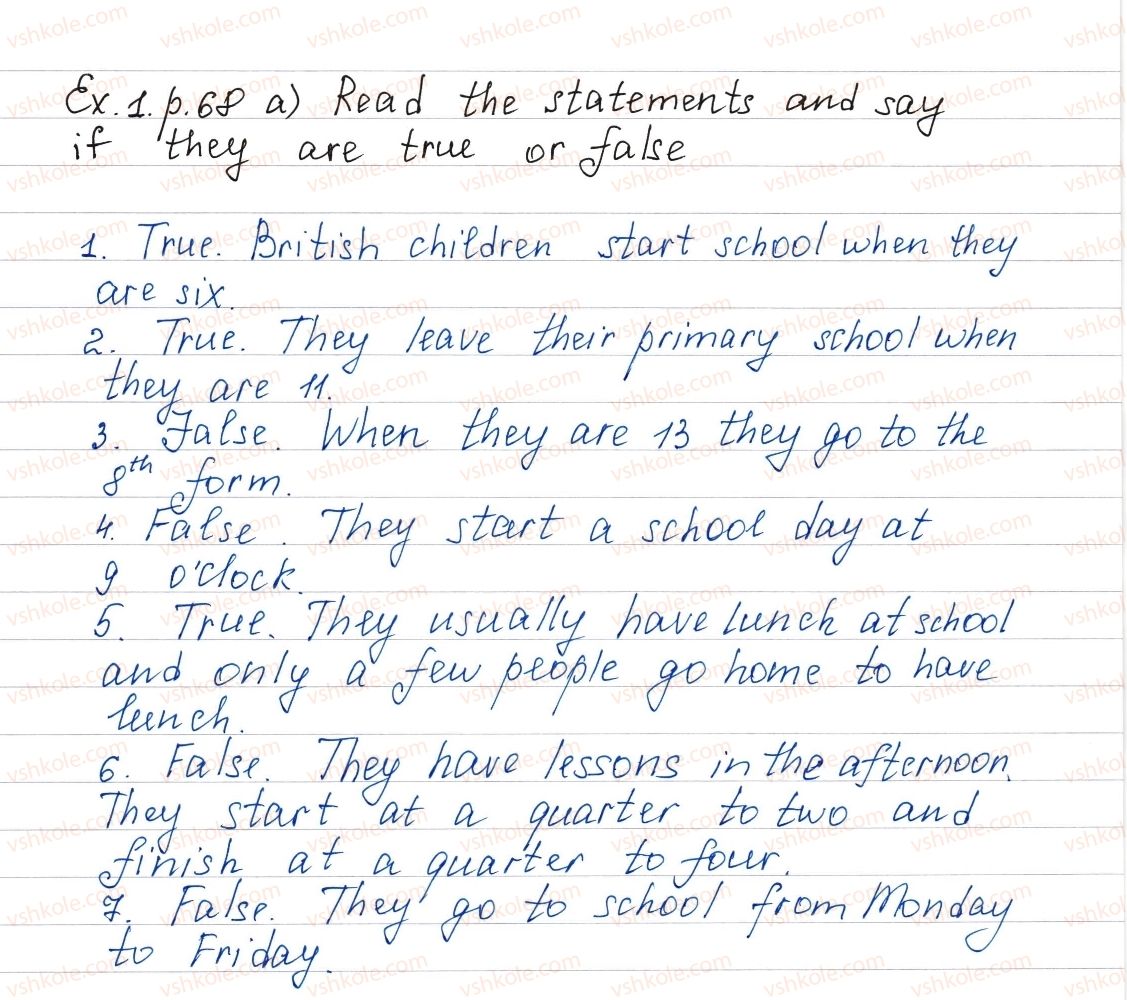 Ex. 1. p. 68 a) Read the statements and say
if they are true or false
1. True. British children start school when they
are six.
2. True. They leave their primary school when
they are 11.
3. False. When they are 13 they go to the
8th form.
4. False. They start a school day at
9 o'clock.
5. True. They usually have lunch at school
and only a few people go home to have
lunch.
6. False. They have lessons in the afternoon.
They start at a quarter to two and
finish at a quarter to four.
7. False. They go to school from Monday
to Friday.
vshkole.com